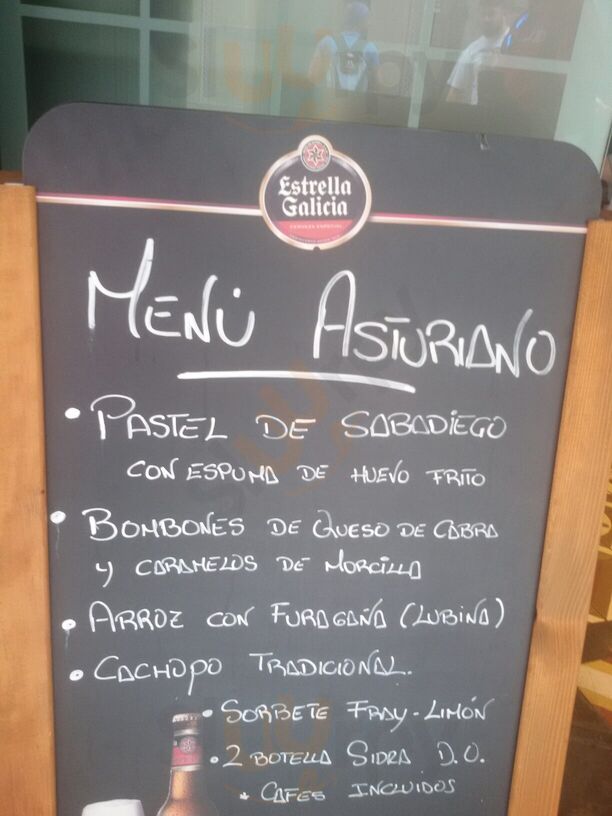 Estrella
Galicia
CERVEZA ESPECIAL
MENÚ ASTURIANO
• PASTEL DE SABADIEGO
CON ESPUMA DE HUEVO FRITO
• BOMBONES DE QUESO DE CABRA
y CARAMELOS DE MORCILLA
• ARROZ CON FURAGAÑA (LUBINA)
• CACHOPO TRADICIONAL.
• SORBETE FRAY-LIMÓN
• 2 BOTELLA SIDRA D.O.
* CAFES INCLUIDOS